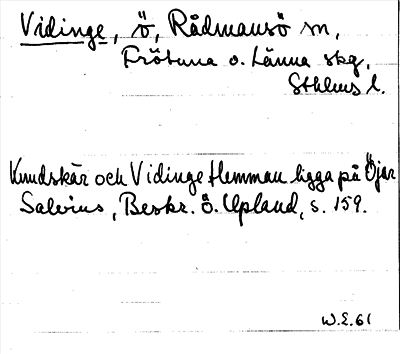 Vidinge, ö, Rådmansö sn,
Frötuna o. Länna skg,
Sthlms l.
Knudskär och Vidinge Hemman ligga på Öjar
Salvius, Beskr. ö. Upland, s. 159.
W.E. 61